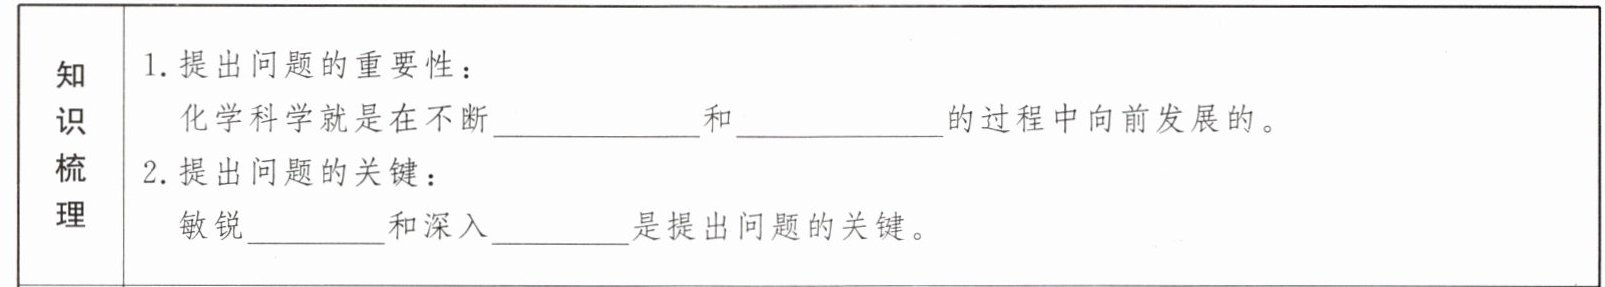 知识梳理
1.提出问题的重要性：
化学科学就是在不断____________和____________的过程中向前发展的。
2.提出问题的关键：
敏锐________和深入________是提出问题的关键。